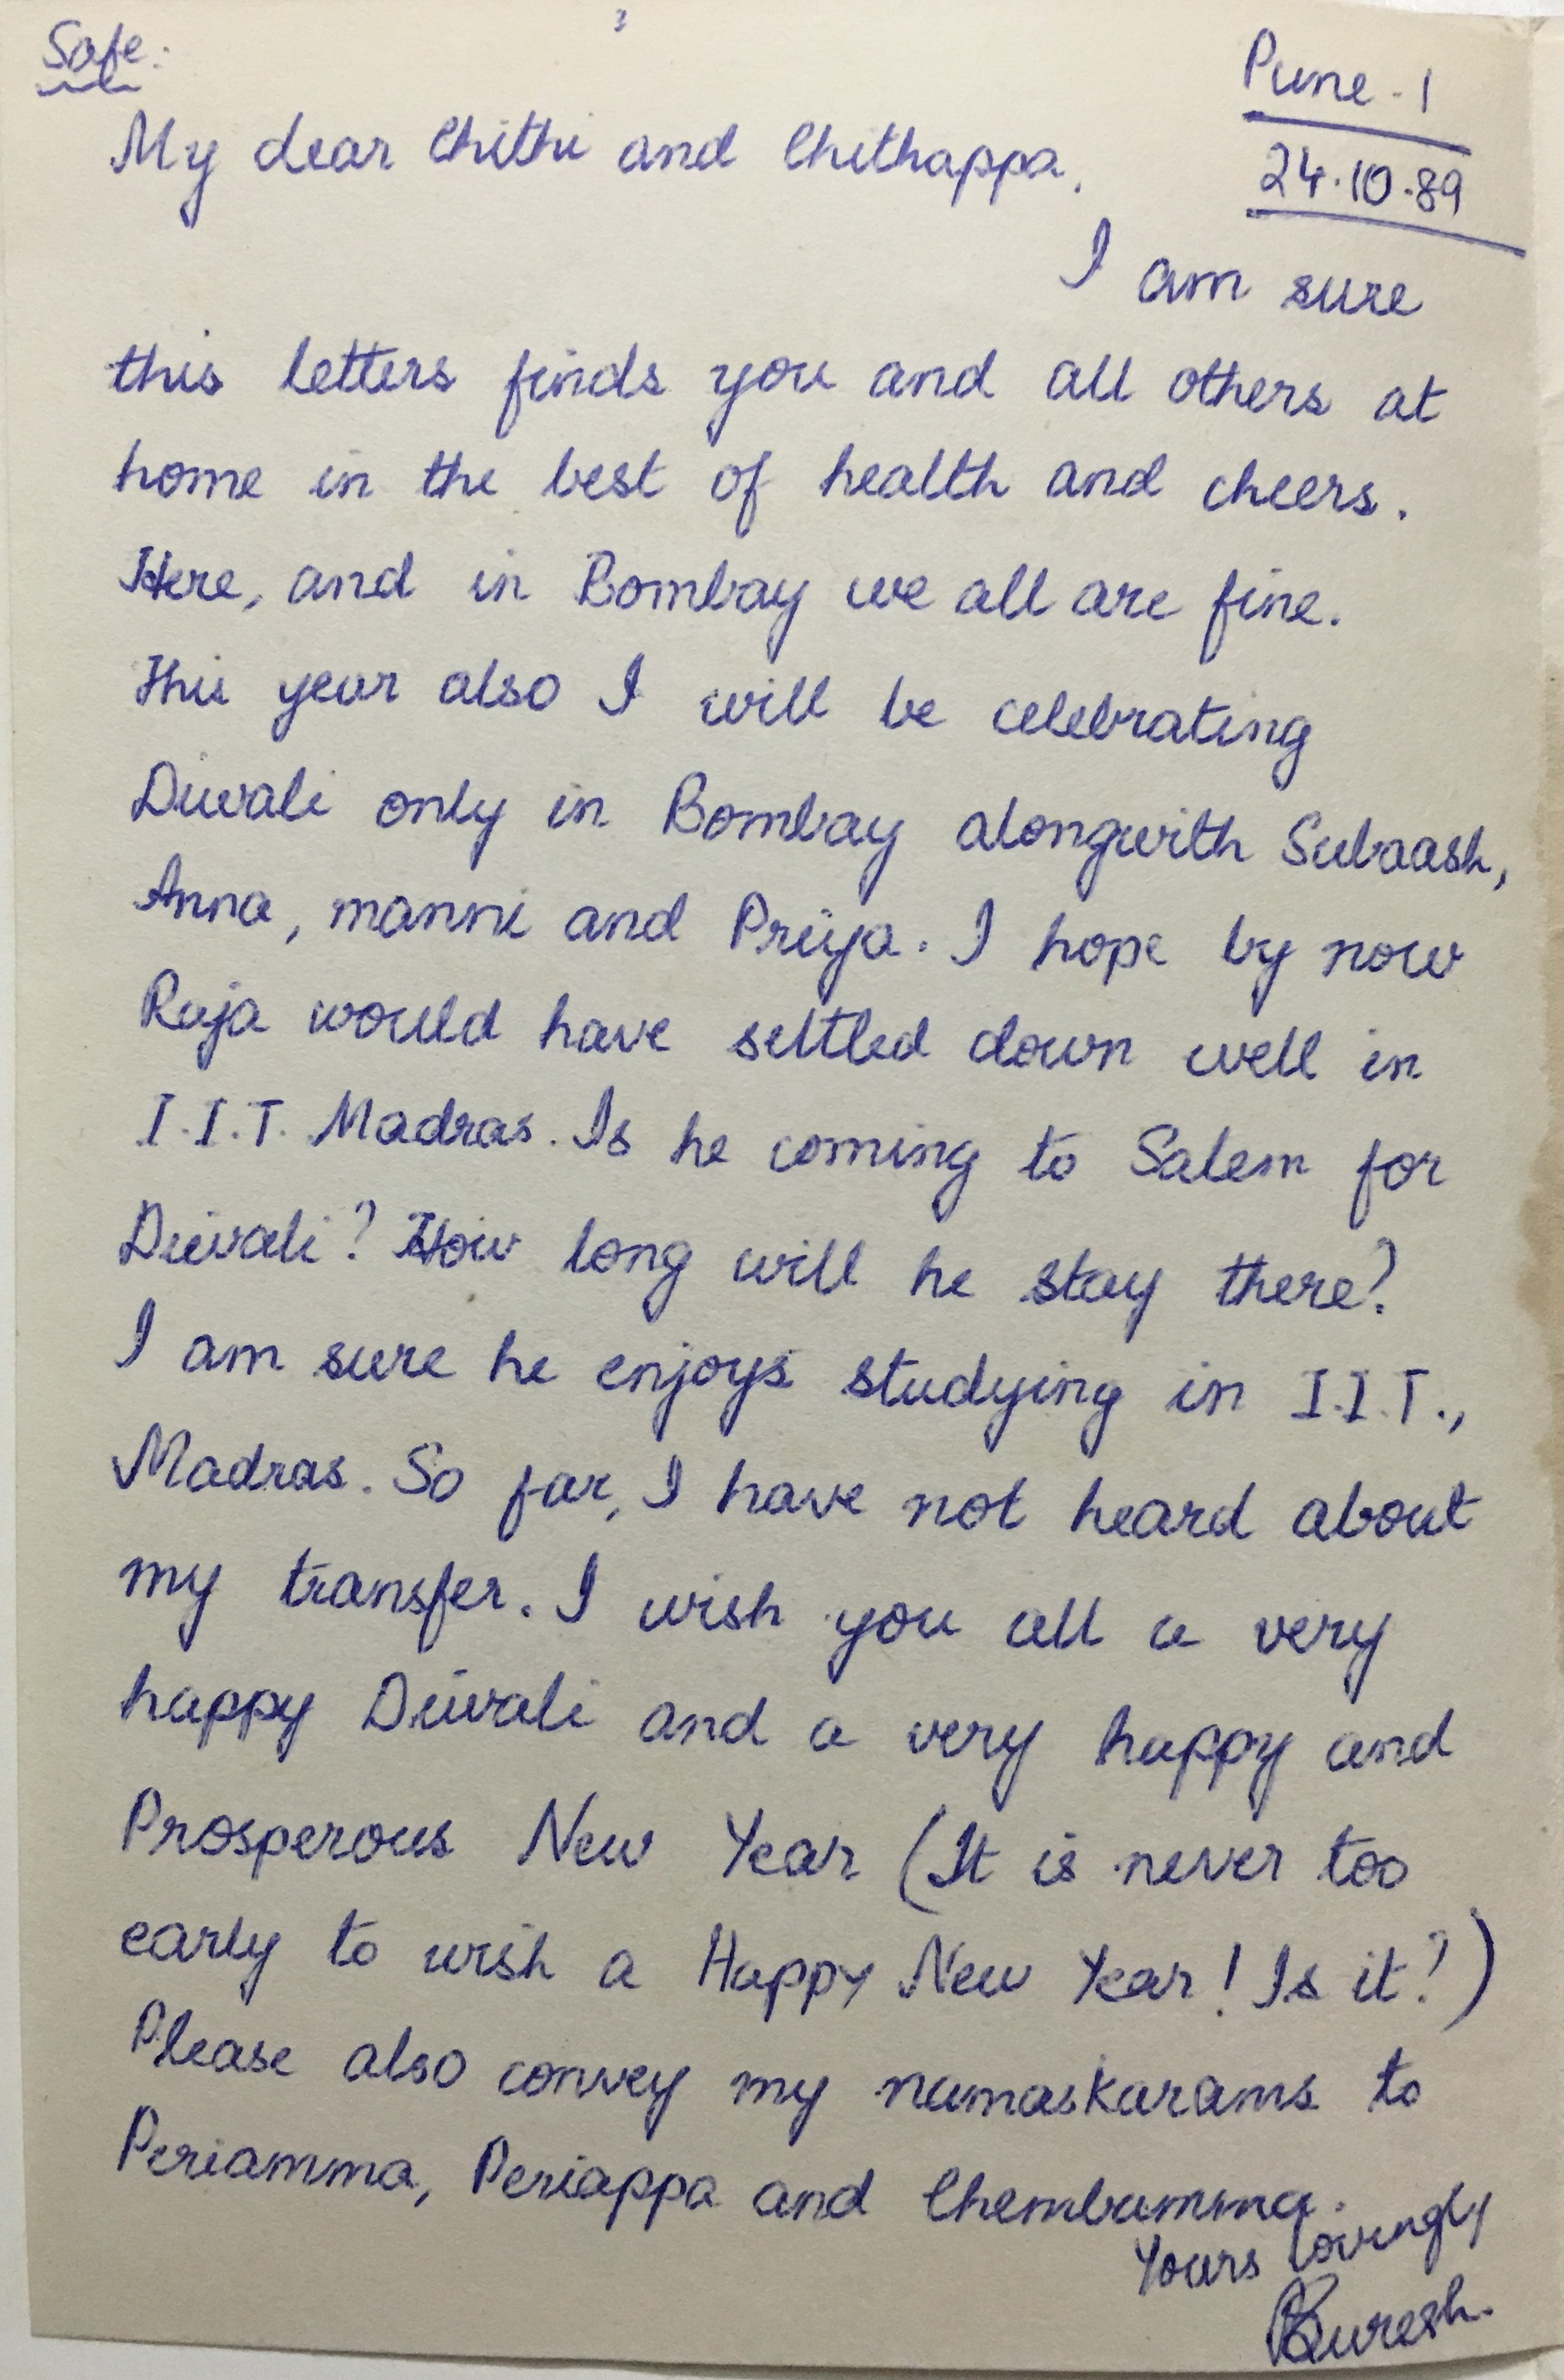 Safe:
Pune-1
24.10.89
My dear Chithi and Chithappa,
I am sure
this letters finds you and all others at
home in the best of health and cheers.
Here, and in Bombay we all are fine.
This year also I will be celebrating
Diwali only in Bombay alongwith Subaash,
Anna, manni and Priya. I hope by now
Raja would have settled down well in
I.I.T. Madras. Is he coming to Salem for
Diwali? How long will he stay there?
I am sure he enjoys studying in I.I.T.,
Madras. So far, I have not heard about
my transfer. I wish you all a very
happy Diwali and a very happy and
Prosperous New Year (It is never too
early to wish a Happy New Year! Is it?)
Please also convey my namaskarams to
Periamma, Periappa and Chembamma.
Yours lovingly
Suresh.